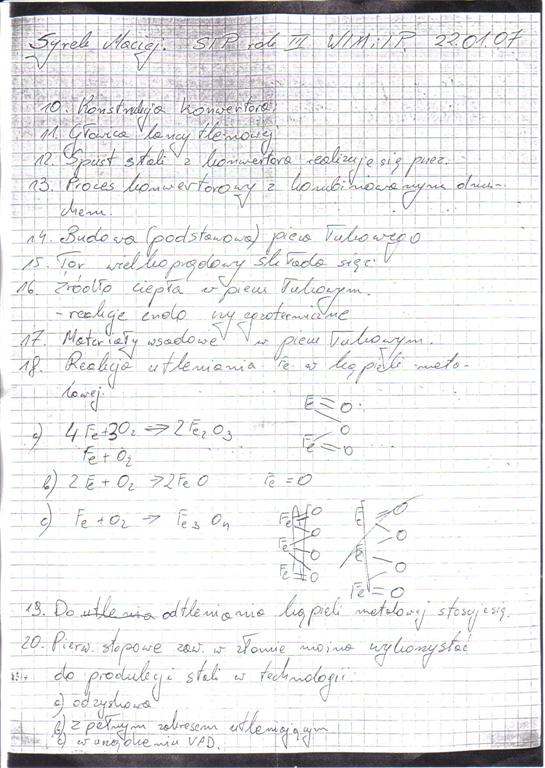 Syrek Maciej. STP rok III WIMiIP. 22.01.07
10. Konstrukcja konwertora
11. Głowica lancy tlenowej
12. Spust stali z konwertora realizuje się przez.
13. Proces konwertorowy z kombinowanym dmu-
chem.
14. Budowa (podstawowa) pieca łukowego
15. Tor wielkoprądowy składa się:
16. Źródło ciepła w piecu łukowym.
- reakcje endo czy egzotermiczne
17. Materiały wsadowe w piecu łukowym.
18. Reakcja utleniania Fe w kąpieli meta-
lowej.
a) 4Fe+3O2 → 2Fe2O3
Fe+O2
b) 2Fe + O2 → 2FeO Fe=O
c) Fe + O2 → Fe3O4
19. Do odtleniania kąpieli metalowej stosuje się.
20. Pierw. stopowe zaw. w złomie można wykorzystać
do produkcji stali w technologii:
a) odzyskowa
b) z pełnym zakresem utleniającym
c) w urządzeniu VAD.